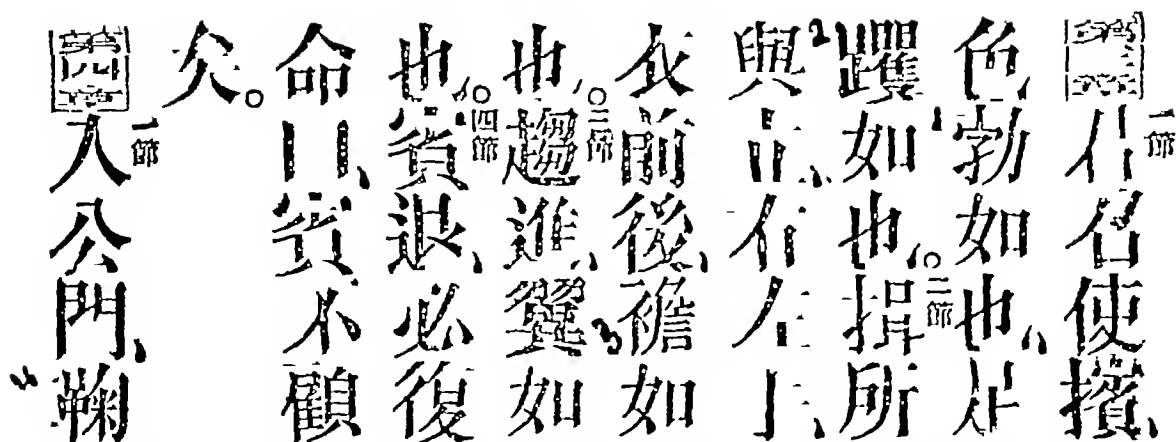 第三章一節君召使擯、
色勃如也、足
躩如也。二節揖所
與立、右左手、
衣前後、襜如
也。三節趨進、翼如
也。四節賓退、必復
命曰、賓不顧
矣。
第四章一節入公門、鞠